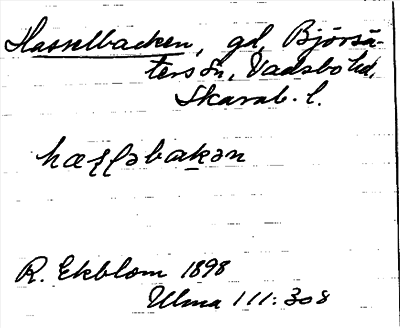 Hasselbacken, gd, Björsä-
ters sn, Vadsbo hd,
Skarab. l.
hæʃʃəbakən
R. Ekblom 1898
Ulma 111:308